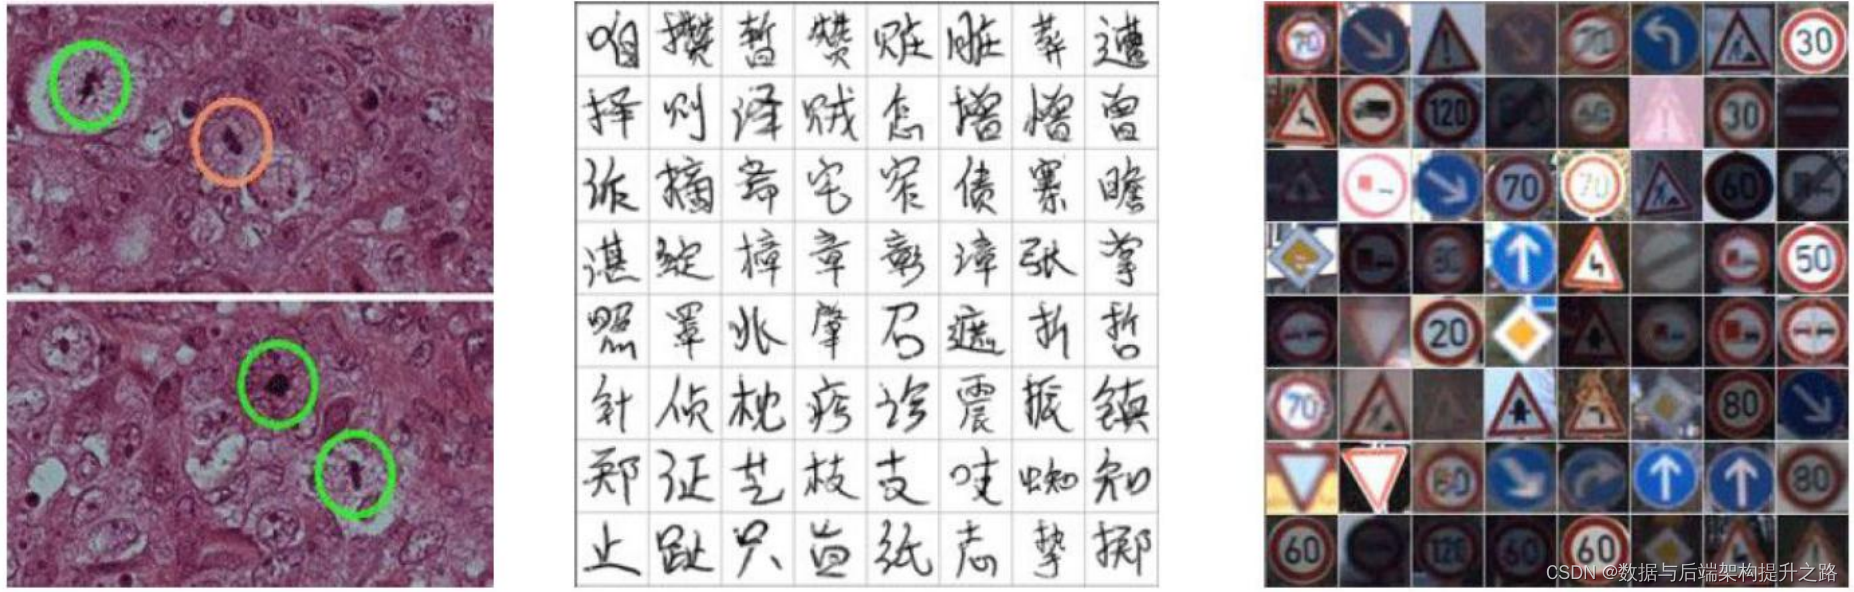 咱 攒 暂 赞 赃 脏 葬 遭
择 则 泽 贼 怎 增 憎 曾
诈 摘 斋 宅 窄 债 寨 瞻
湛 绽 樟 章 彰 漳 张 掌
照 罩 兆 肇 召 遮 折 哲
针 侦 枕 疹 诊 震 振 镇
郑 证 芝 枝 支 吱 蜘 知
止 趾 只 旨 纸 志 挚 掷
70 70 30
120 60 30
70 70 60
80 50
20
70 80
80
60 120 60 60
CSDN @数据与后端架构提升之路